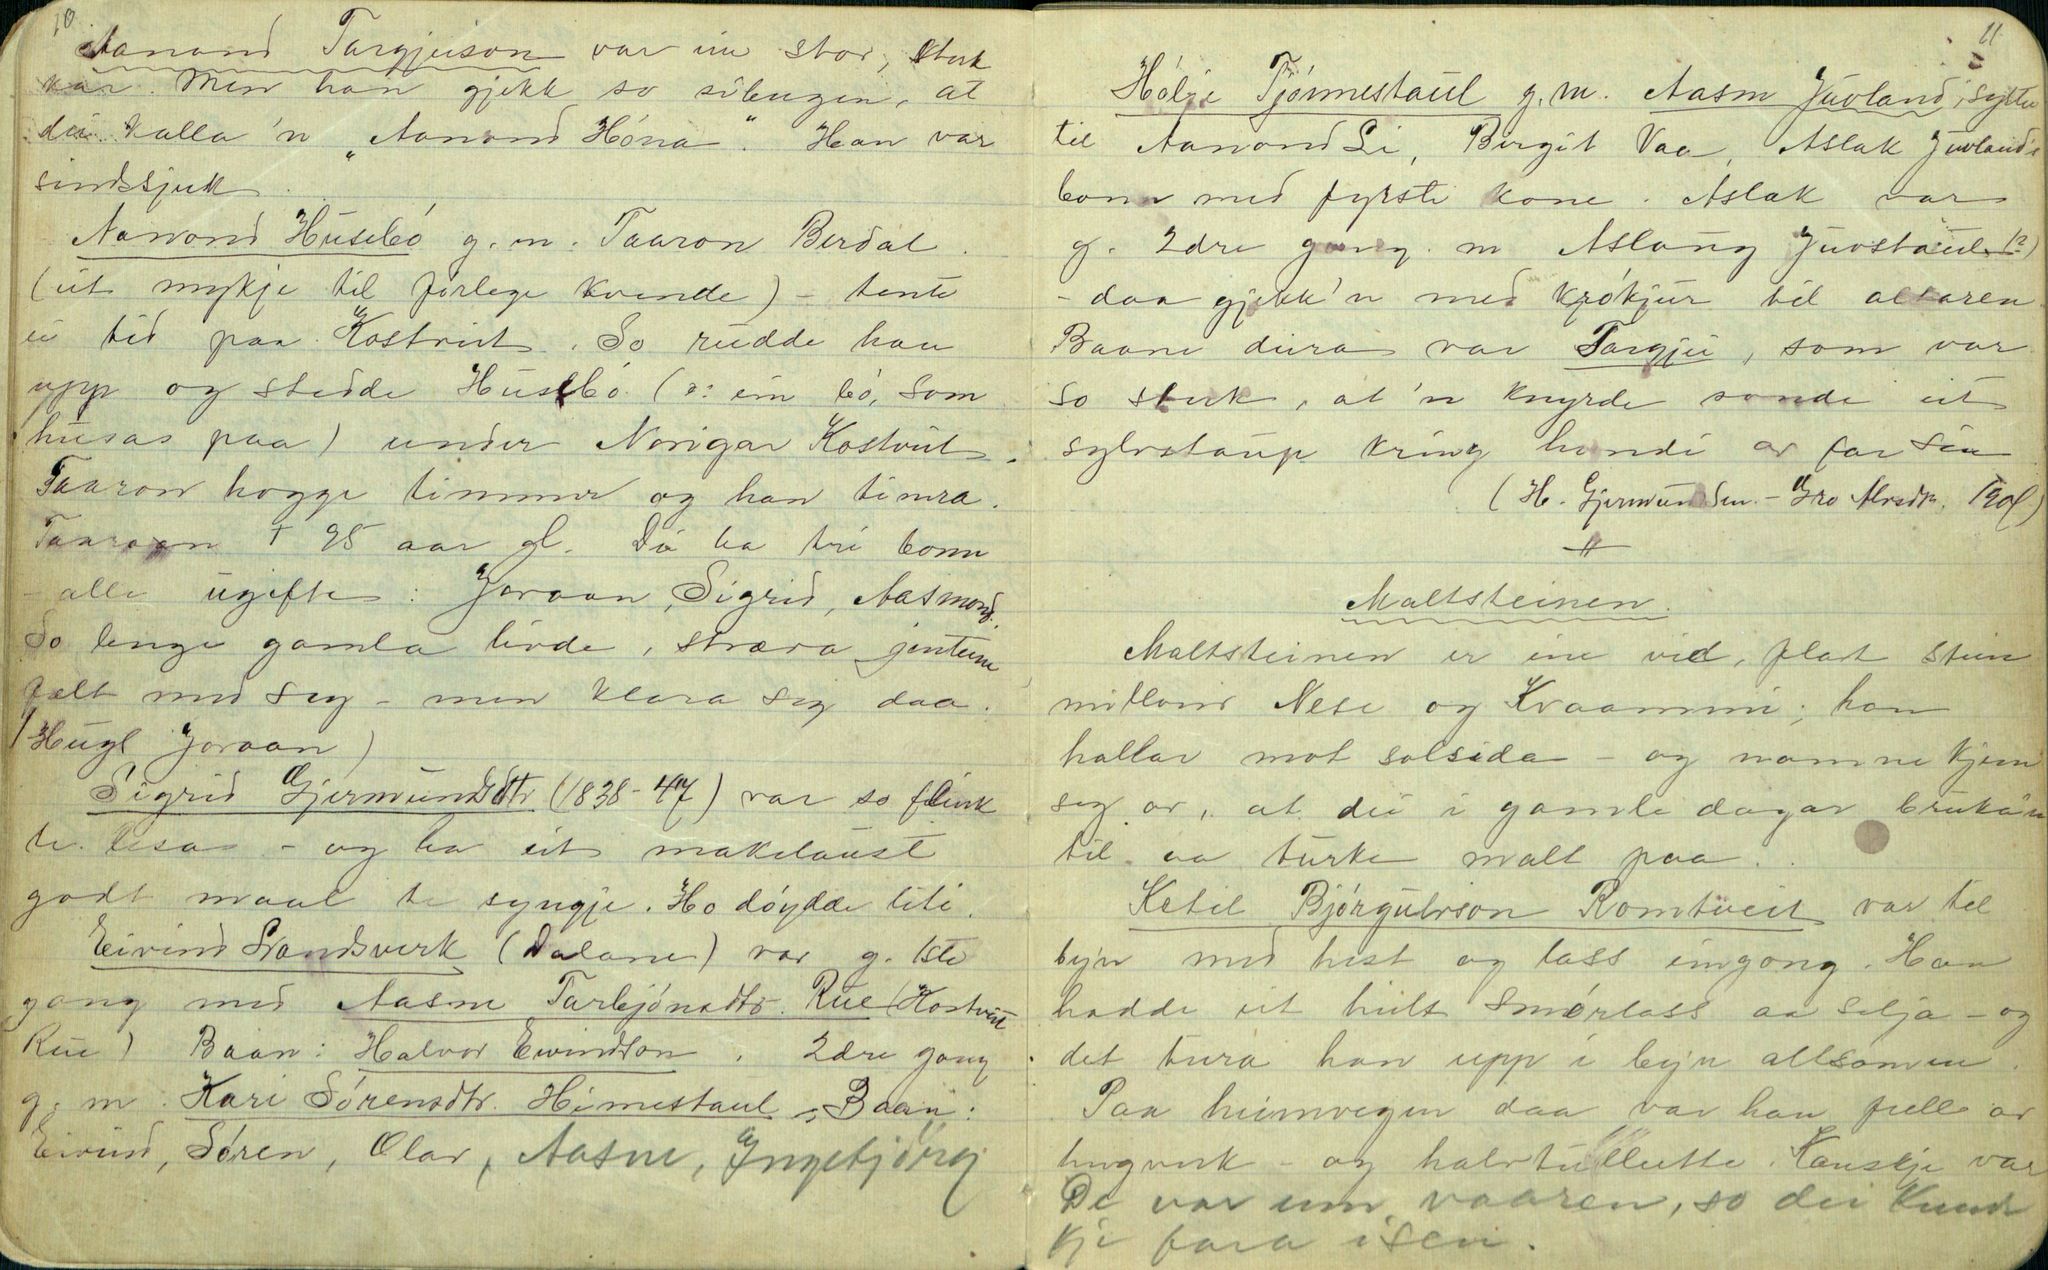 10
Aanond Targjeison var ein stor, sterk
kar. Men han gjekk so sibugen, at
dei kalla 'n „Aanond Hóna". Han var
sindssjuk.
Aanond Húsebó g. m. Taaron Berdal.
(eit mykje til førlege kvende) – tente
ei tid paa Kostveit. So rudde han
upp og stedde Húsebó (ɔ: ein bó, som
húsas paa) under Norigar Kostveit.
Taaron hogge timmer og han timra.
Taaraan † 95 aar gl. Dei ha tri bonn
– alle ugifte: Joraan, Sigrid, Aasmond.
So lenge gamla livde, stræva jentune
fælt med seg – men klara seg daa.
(Húgl Joraan)
Sigrid Gjermundsdtr (1838-47) var so flink
te lesa – og ha eit makelaust
godt maal te syngje. Ho dóydde liti.
Eivind Sandsverk (Dalane) var g. 1ste
gang med Aasne Tarbjónsdtr. Rue (Kostveit
Rue) Baan: Halvor Eivindson. 2dre gong
g. m. Kari Sórensdtr. Himestaul – Baan:
Eivind, Søren, Olav, Aasne, Ingebjörg
11
Hólje Tjónnestaul g. m. Aasne Juvland, syster
til Aanond Li, Birgit Vaa, Aslak Juvland's
bonn med fyrste kone. Aslak var
g. 2dre gong m Aslaug Juvstaul (?)
– daa gjekk 'n med krókjur til altaren.
Baane deira var Targjei, som var
so sterk, at 'n knyrde sonde eit
sylvstaup kring hondi av far sin
(H. Gjermundsen. – Gro Alvsdtr. 1901)
Maltsteinen.
Maltsteinen er ein vid, flat stein
millom Nese og Kraammi; han
hallar mot solsida – og namne kjem
seg av, at dei i gamle dagar bruka'n
til aa turke malt paa.
Ketil Bjórgulvson Romtveit var til
byn med hest og lass eingong. Han
hadde eit heilt smórlass aa selja – og
det tura han upp i byn allsamen.
Paa heimvegen daa var han full av
hugverk – og halvtullutte. Kanskje var
De var um vaaren, so dei kunde
kje fara isen.